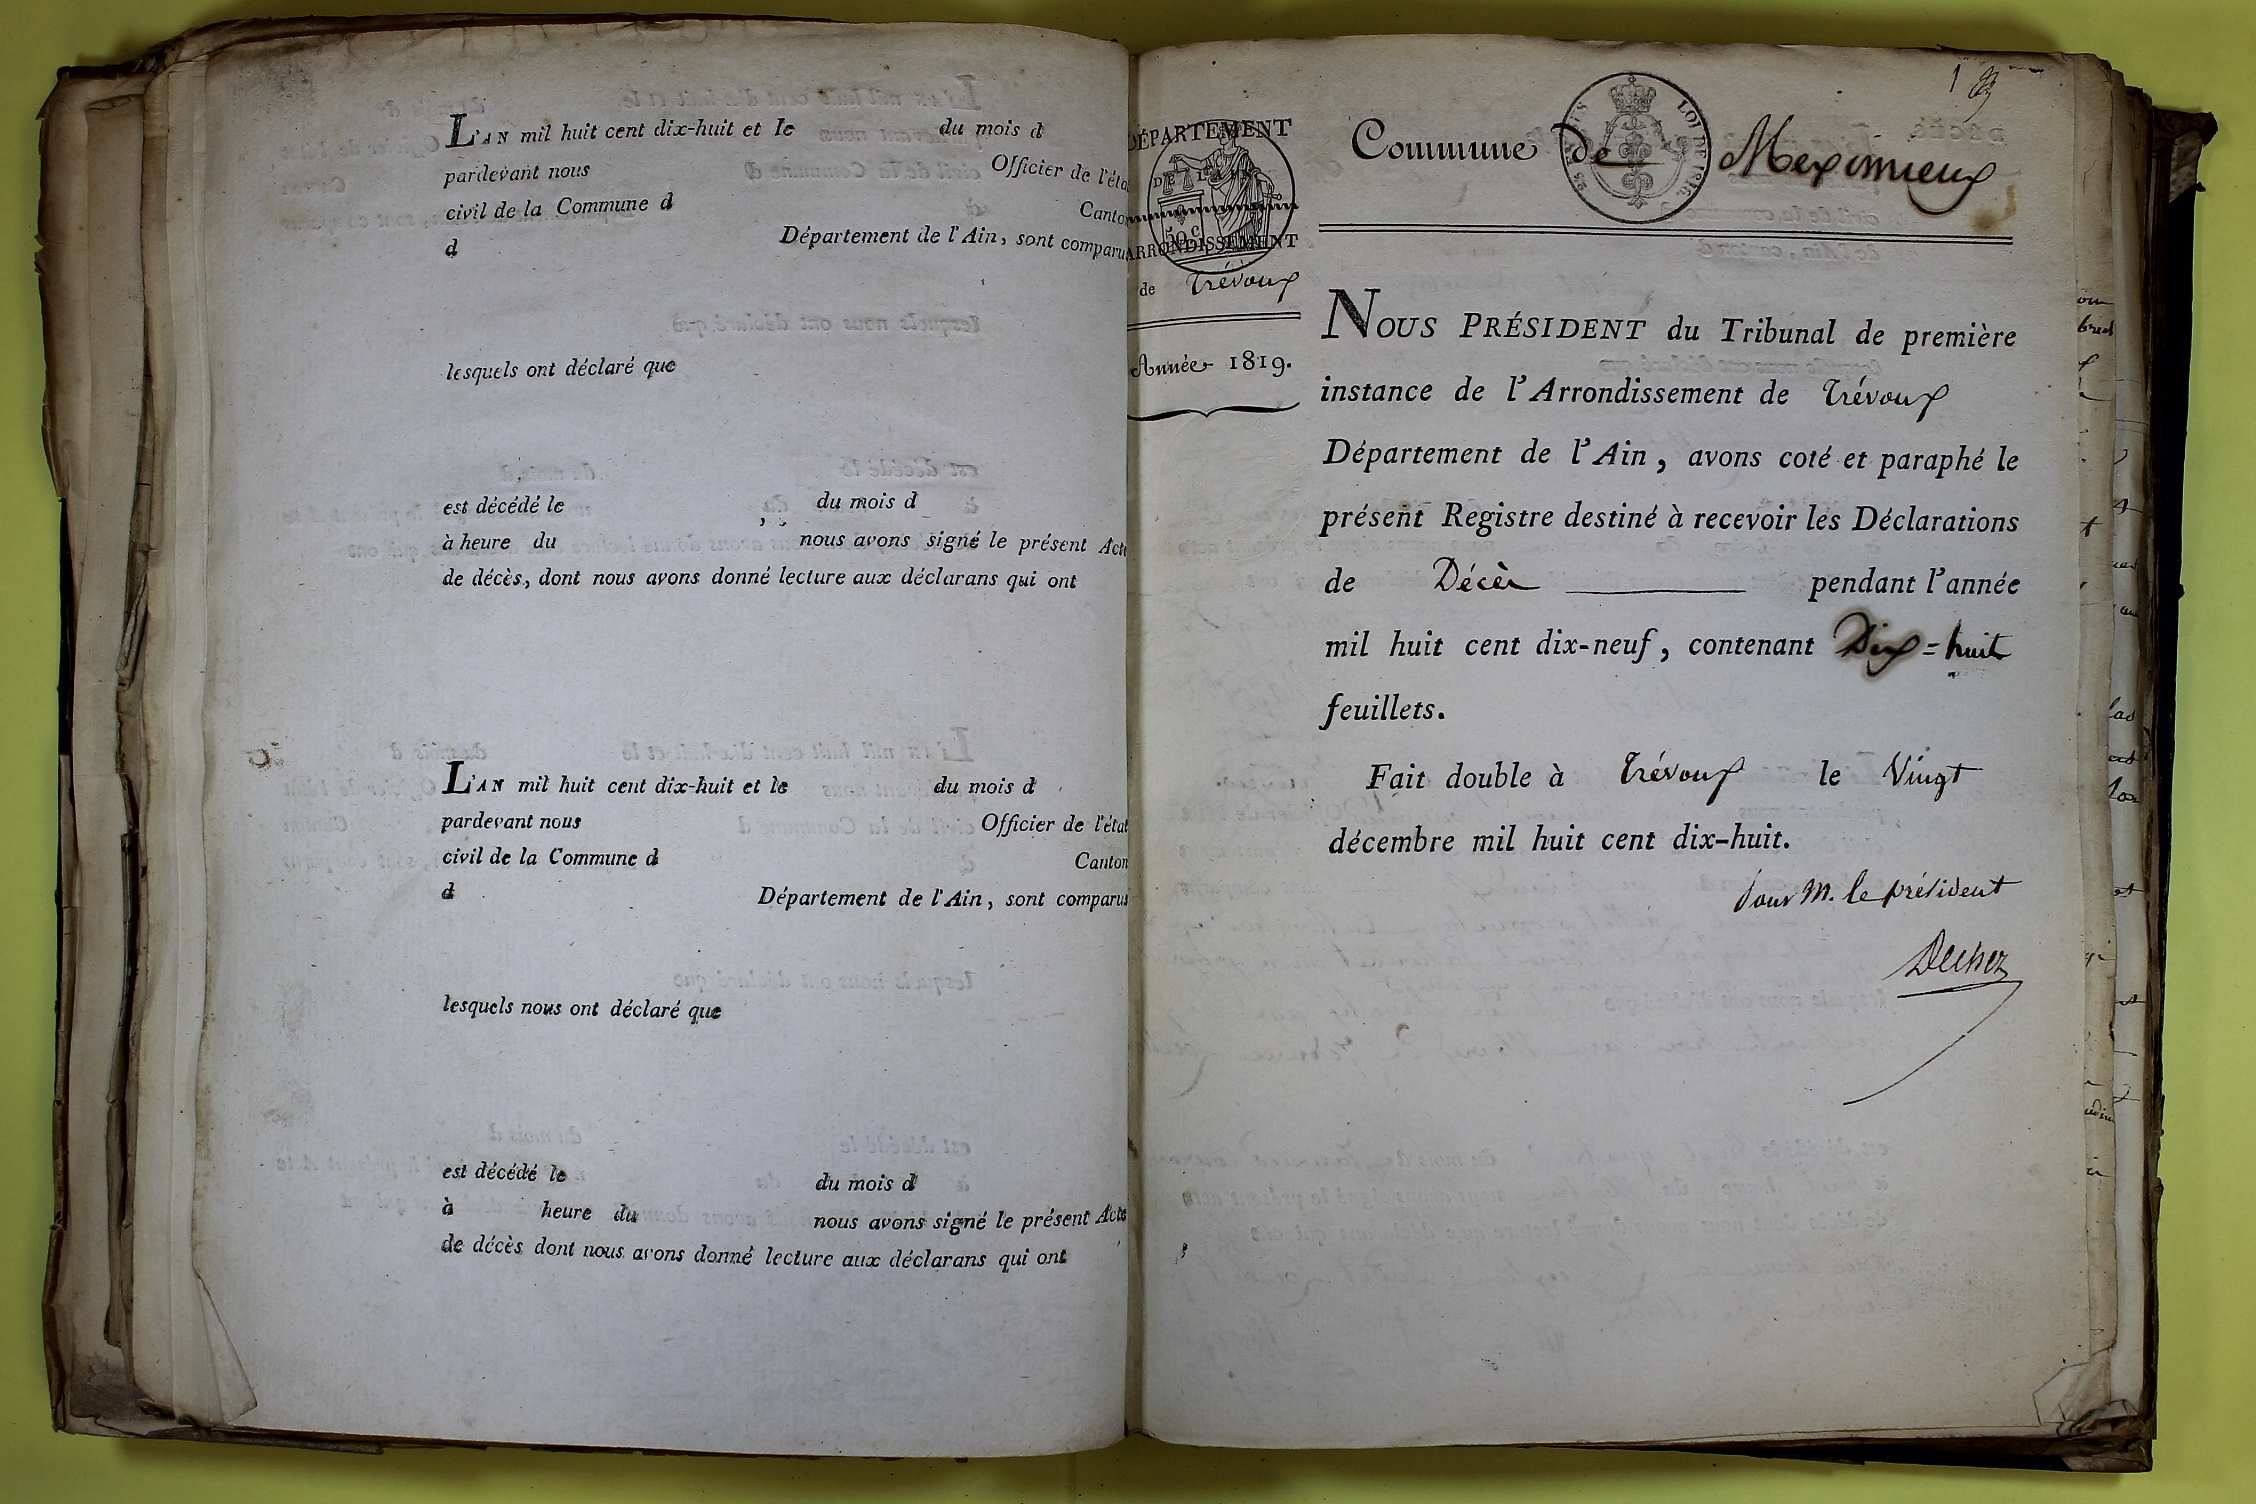 L'AN mil huit cent dix-huit et le du mois d
pardevant nous Officier de l'éta
civil de la Commune d Canton
d Département de l'Ain, sont comparu
lesquels ont déclaré que
est décédé le du mois d
à heure du nous avons signé le présent Acte
de décès, dont nous avons donné lecture aux déclarans qui ont
L'AN mil huit cent dix-huit et le du mois d
pardevant nous Officier de l'état
civil de la Commune d Canton
d Département de l'Ain, sont comparus
lesquels nous ont déclaré que
est décédé le du mois d
à heure du nous avons signé le présent Acte
de décès dont nous avons donné lecture aux déclarans qui ont
1
DÉPARTEMENT
DE L'AIN
50 c
ARRONDISSEMENT
de Trévoux
Année 1819.
Commune de Meximieux
LOI DE 1816
NOUS PRÉSIDENT du Tribunal de première
instance de l'Arrondissement de Trévoux
Département de l'Ain, avons coté et paraphé le
présent Registre destiné à recevoir les Déclarations
de Décès pendant l'année
mil huit cent dix-neuf, contenant Dix=huit
feuillets.
Fait double à Trévoux le Vingt
décembre mil huit cent dix-huit.
Pour M. le président